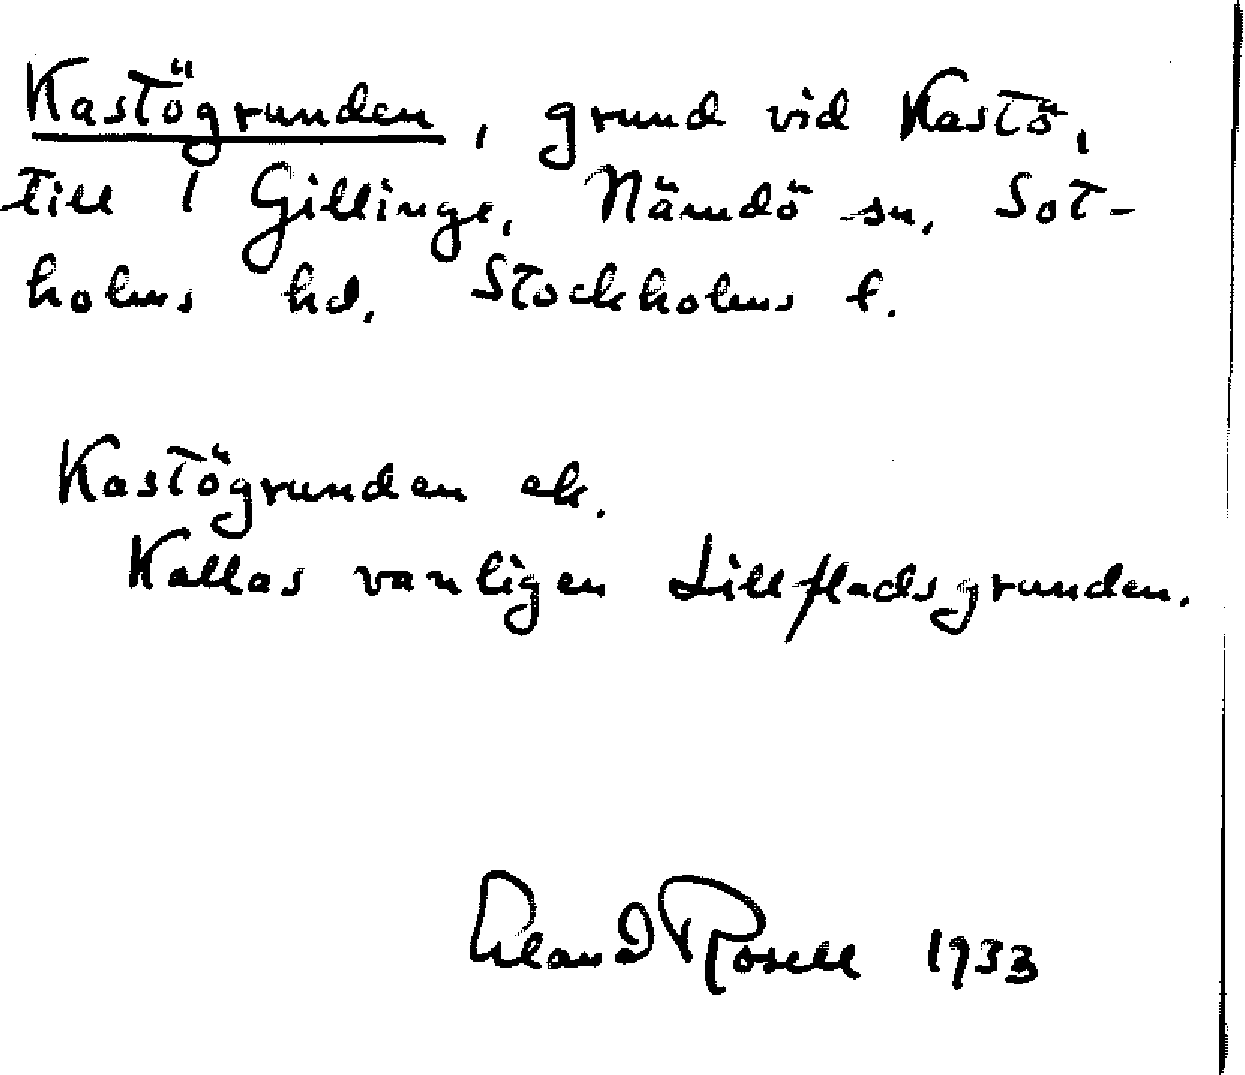 Kastögrunden, grund vid Kastö,
till 1 Gillinge, Nämdö sn, Sot-
holms hd, Stockholms l.
Kastögrunden ek.
Kallas vanligen Lillfladsgrunden.
Erland Rosell 1933